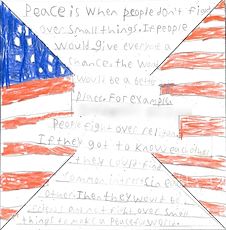 Peace is when people don't fight
over small things. If people
would give everyone a
chance the world
would be a better
place. For example
People fight over religion
If they got to know each other
they could find
common interest in each
other. Then they would be
and not fight over small
things to make a Peaceful world.